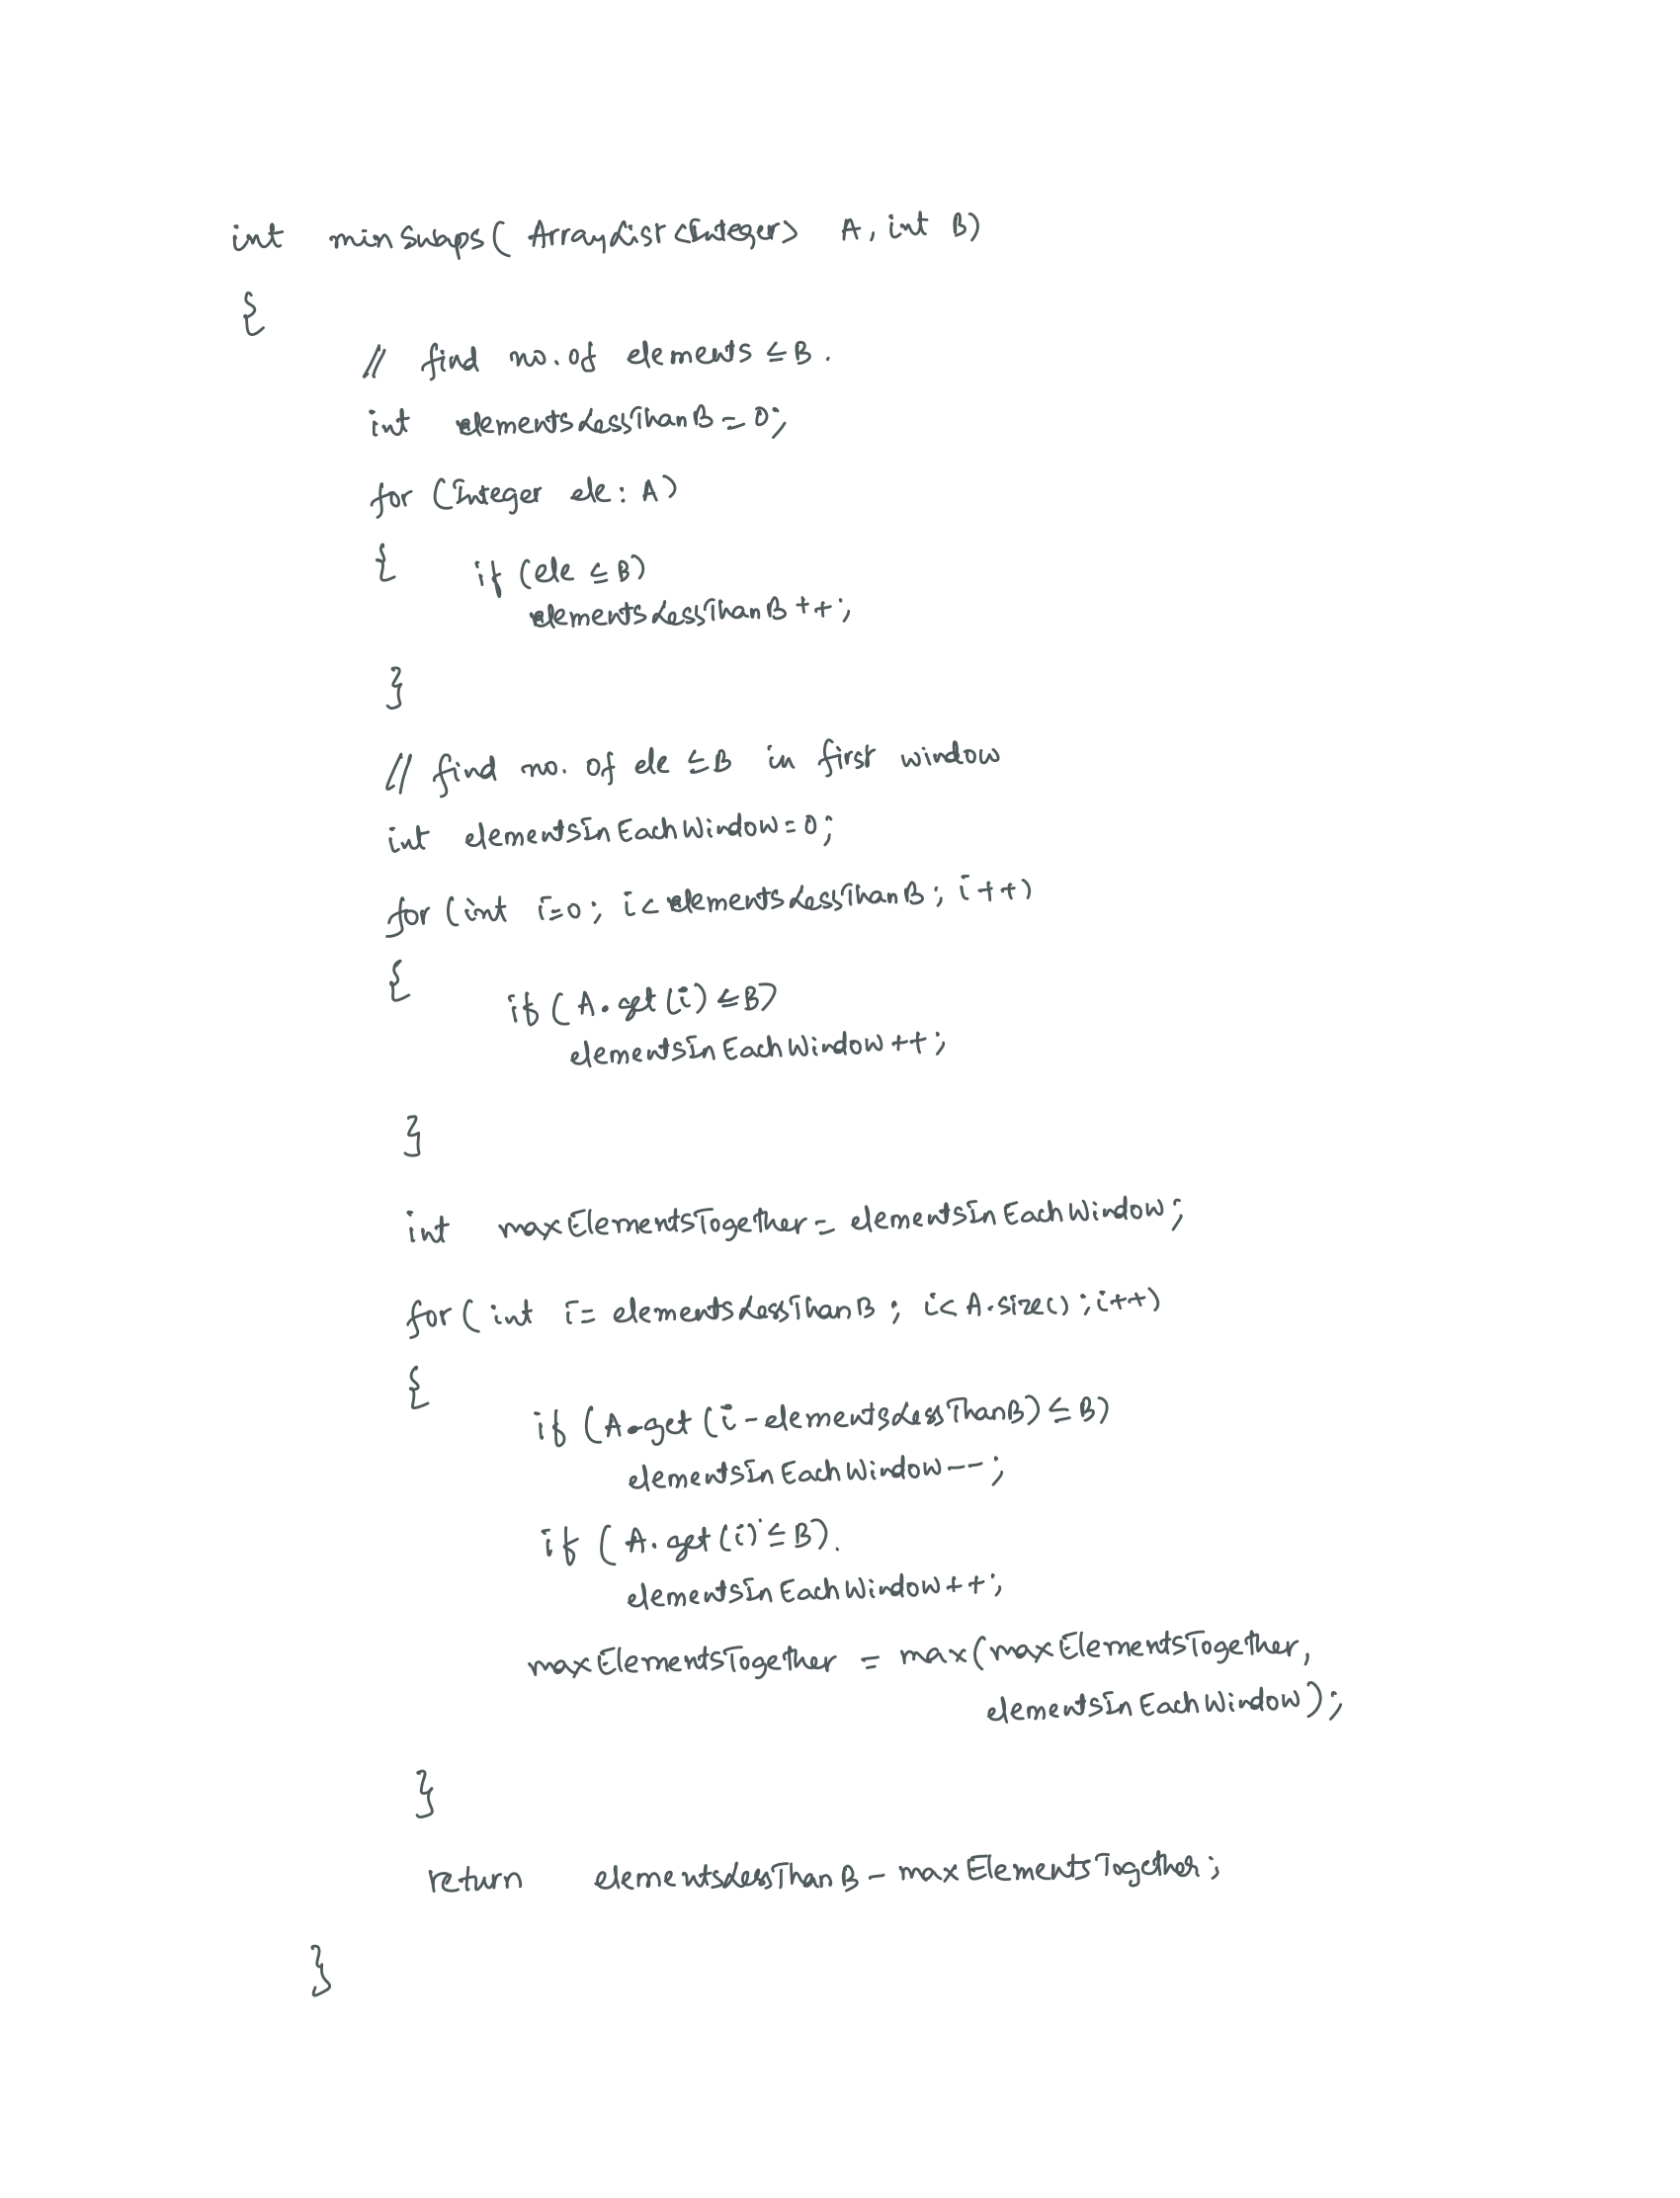 int minSwaps( ArrayList<Integer> A, int B)
{
// find no. of elements ≤ B.
int elementsLessThanB = 0;
for (Integer ele : A)
{ if (ele ≤ B)
elementsLessThanB ++;
}
// find no. of ele ≤ B in first window
int elementsInEachWindow = 0;
for (int i=0; i< elementsLessThanB; i++)
{
if (A.get(i) ≤ B)
elementsInEachWindow ++;
}
int maxElementsTogether = elementsInEachWindow;
for ( int i= elementsLessThanB ; i< A.size() ; i++)
{
if (A.get(i - elementsLessThanB) ≤ B)
elementsInEachWindow --;
if ( A.get(i) ≤ B).
elementsInEachWindow ++;
maxElementsTogether = max(maxElementsTogether,
elementsInEachWindow);
}
return elementsLessThanB - maxElementsTogether;
}